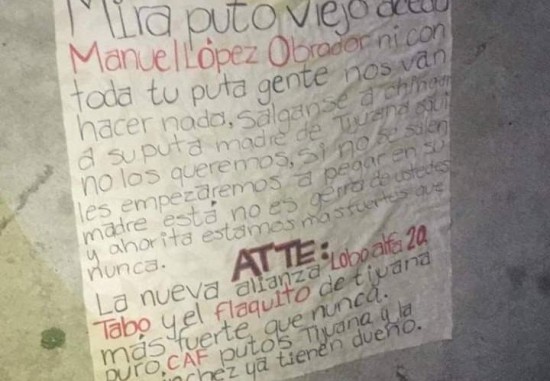 Mira puto viejo
Manuel López Obrador ni con
toda tu puta gente nos van
hacer nada, salganse a chingar
a su puta madre de Tijuana aqui
no los queremos, si no se salen
les empezaremos a pegar en su
madre está no es gerra de ustedes
y ahorita estamos mas fuertes que
nunca.
ATTE:
La nueva alianza Lobo alfa 20
Tabo y el flaquito de tijuana
más fuerte que nunca.
puro, CAF putos Tijuana y la
ya tienen dueño.